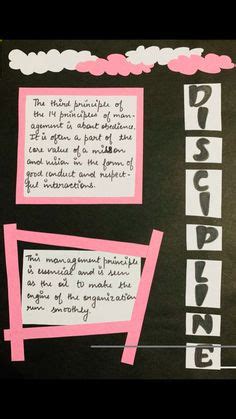 The third principle of
the 14 principles of man-
agement is about obedience.
It is often a part of the
core value of a mission
and vision in the form of
good conduct and respect-
ful interactions.
This management principle
is essential and is seen
as the oil to make the
engine of the organization
run smoothly.
DISCIPLINE